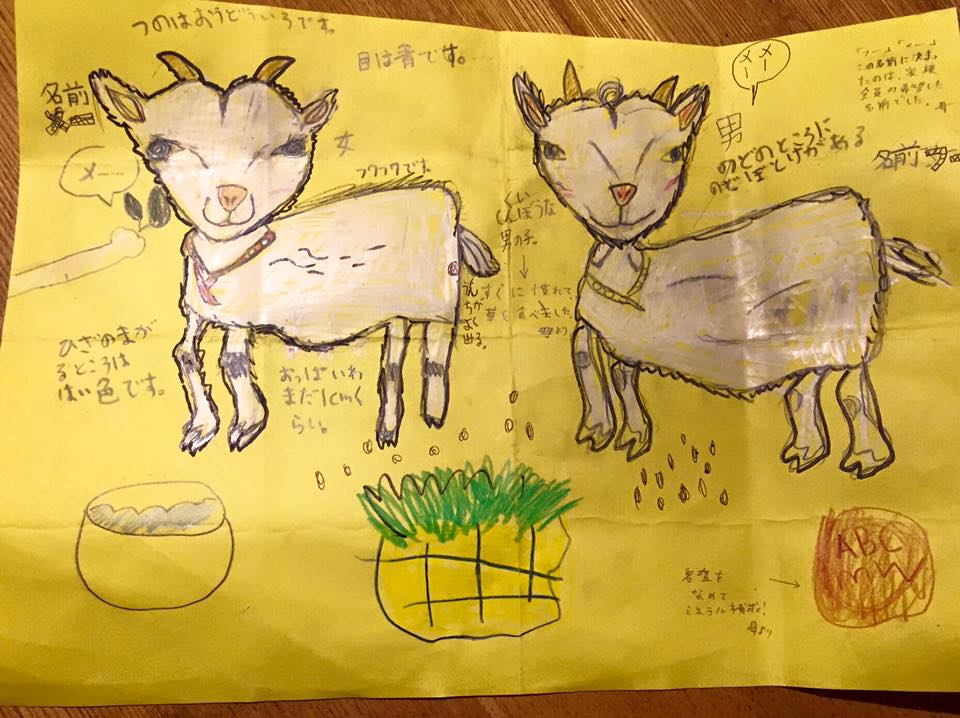 つのはおうどういろです。
目は青です。
名前
メー…
女
フワフワです
ひざのまが
るところは
はい色です。
おっぱいわ
まだ1cmく
らい。
うんちが
よく
出る。
くい
しんぼうな
男の子。
すぐに慣れて、
草を食べました。
母より
メー
メー
男
のどのところに
のどぼとけがある
この名前に決まっ
たのは、家族
全員の希望した
名前でした。母
名前
なめて
ミネラル補求!
母より
ABC